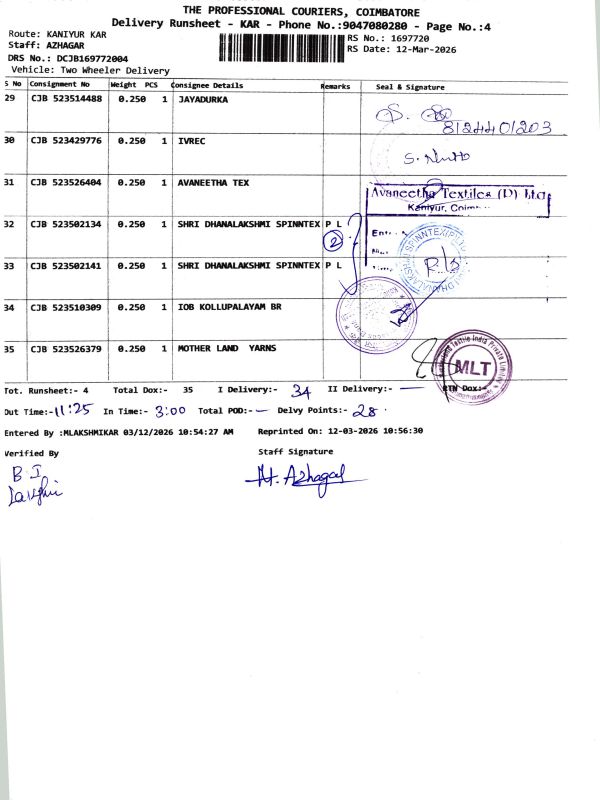 THE PROFESSIONAL COURIERS, COIMBATORE
Delivery Runsheet - KAR - Phone No.:9047080280 - Page No.:4
Route: KANIYUR KAR
Staff: AZHAGAR
DRS No.: DCJB169772004
Vehicle: Two Wheeler Delivery
RS No.: 1697720
RS Date: 12-Mar-2026
S No Consignment No Weight PCS Consignee Details Remarks Seal & Signature
29 CJB 523514488 0.250 1 JAYADURKA
8124401203
30 CJB 523429776 0.250 1 IVREC
31 CJB 523526404 0.250 1 AVANEETHA TEX
Avaneetha Textiles (P) Ltd
Kaniyur,
32 CJB 523502134 0.250 1 SHRI DHANALAKSHMI SPINNTEX P L
2
33 CJB 523502141 0.250 1 SHRI DHANALAKSHMI SPINNTEX P L
34 CJB 523510309 0.250 1 IOB KOLLUPALAYAM BR
35 CJB 523526379 0.250 1 MOTHER LAND YARNS
MLT
Tot. Runsheet:- 4 Total Dox:- 35 I Delivery:- 34 II Delivery:- — RTN Dox:-
Out Time:- 11:25 In Time:- 3:00 Total POD:- — Delvy Points:- 28
Entered By :MLAKSHMIKAR 03/12/2026 10:54:27 AM Reprinted On: 12-03-2026 10:56:30
Verified By
Staff Signature
B. I
At. Azhagar